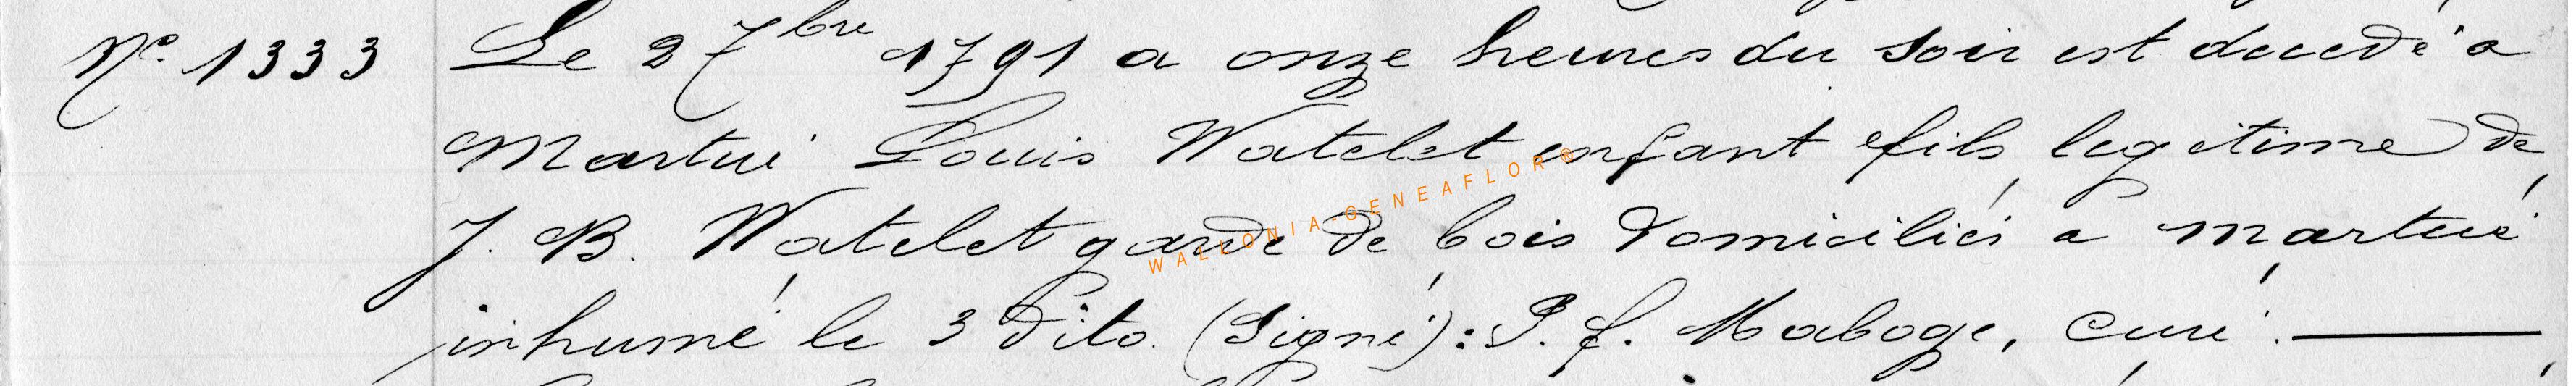 N° 1333 Le 2 7bre 1791 a onze heures du soir est decedé a
Martué Louis Watelet enfant fils legitime de
J. B. Watelet garde de bois domiciliés a martué
inhumé le 3 dito. (Signé) : P. f. Maboge, curé. —
WALLONIA-GENEAFLOR®